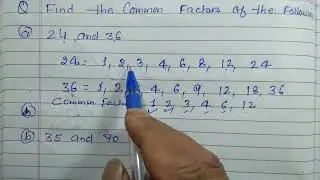 Q Find the Common Factors of the Following
(a) 24 and 36
24 = 1, 2, 3, 4, 6, 8, 12, 24
36 = 1, 2, 4, 6, 9, 12, 18, 36
Common 1, 2, 3, 4, 6, 12
(b) 35 and